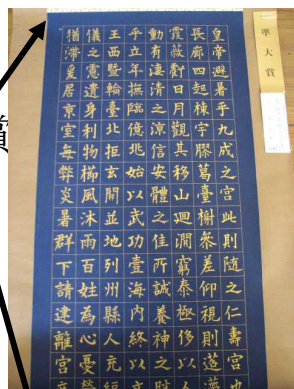 準大賞
皇帝避暑乎九成之宮此則随之仁壽宮也
長廊四起棟宇膠葛臺榭參差仰視則迢
霞蔽虧日月觀其移山迴澗窮泰極侈以
動有淒清之涼信安體之佳所誠養神之
乎立年撫臨億兆始以武功壹海內終以文
王西曁輪臺北拒玄闕並地列州縣人充
儀之遺身利物櫛風沐雨百姓為心憂
猶滯爰居京室每弊炎暑群下請建離宮